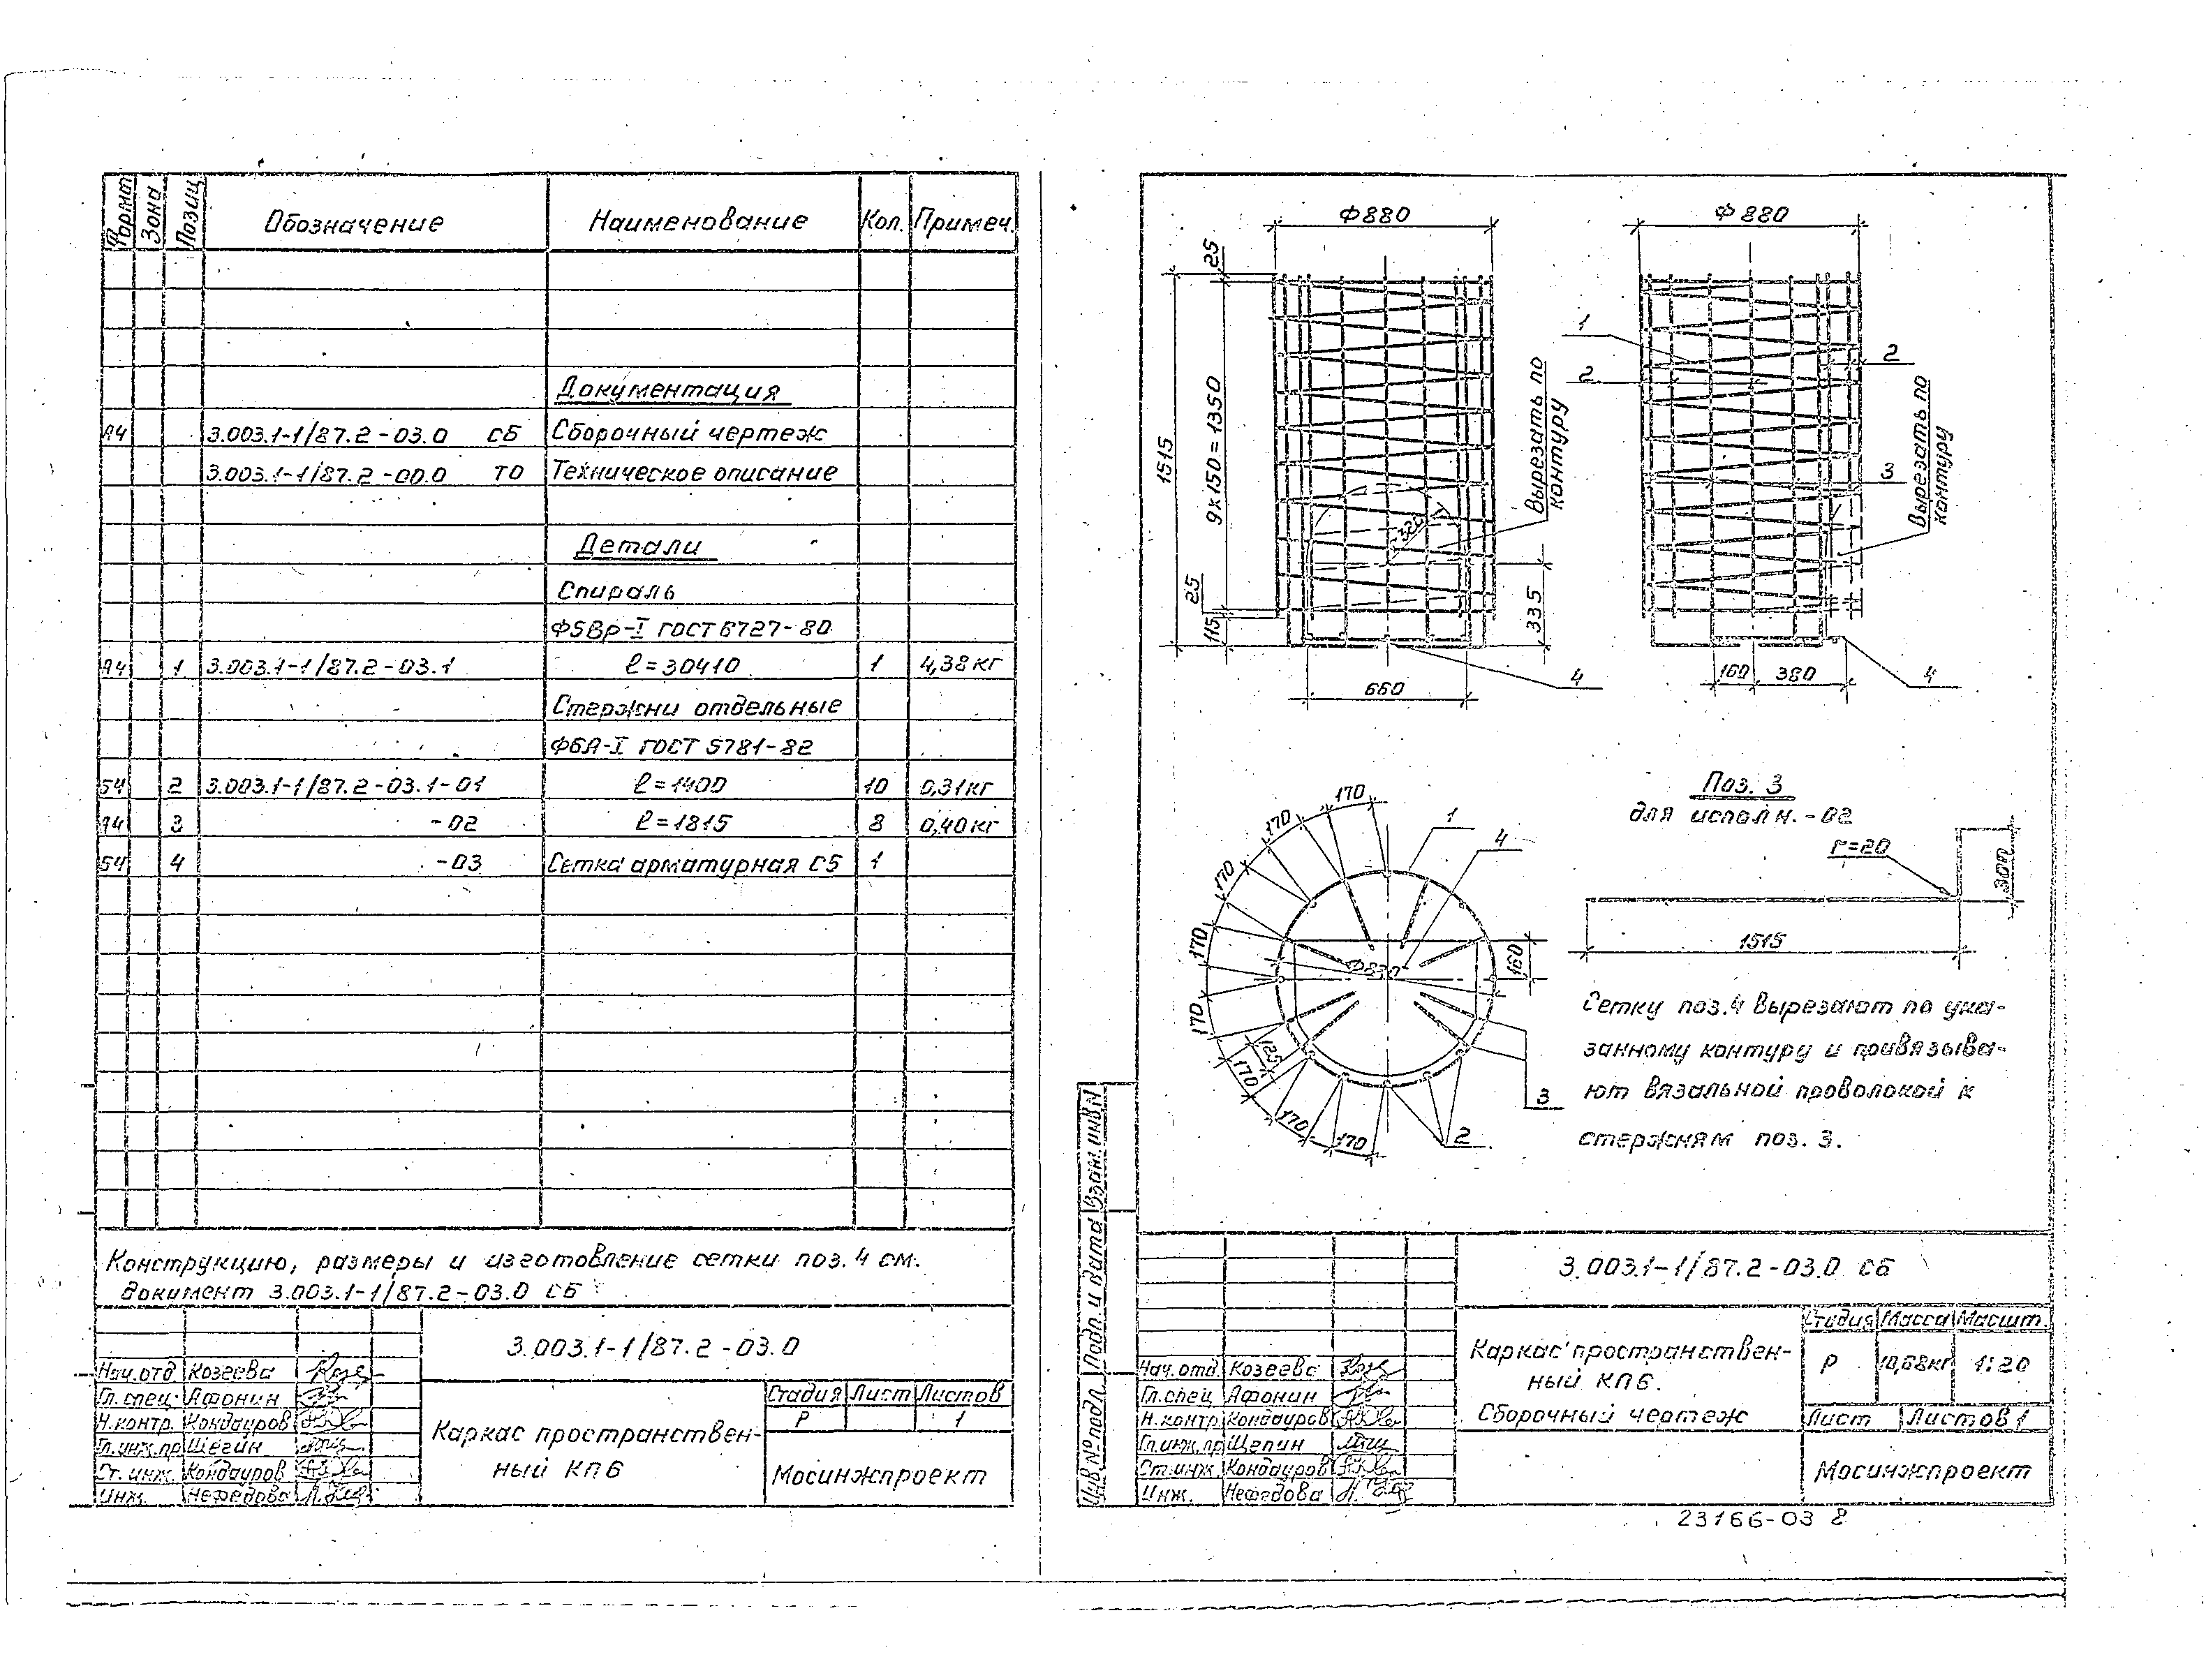 Формат Зона Позиц Обозначение Наименование Кол. Примеч.
Документация
А4 3.003.1-1/87.2-03.0 СБ Сборочный чертеж
3.003.1-1/87.2-00.0 ТО Техническое описание
Детали
Спираль
Ф5Вр-I ГОСТ 6727-80
А4 1 3.003.1-1/87.2-03.1 ℓ=30410 1 4,38кг
Стержни отдельные
Ф6А-I ГОСТ 5781-82
БЧ 2 3.003.1-1/87.2-03.1-01 ℓ=1400 10 0,31кг
А4 3 -02 ℓ=1815 8 0,40кг
БЧ 4 -03 Сетка арматурная С5 1
Конструкцию, размеры и изготовление сетки поз. 4 см.
документ 3.003.1-1/87.2-03.0 СБ
3.003.1-1/87.2-03.0
Нач.отд Козеева
Гл.спец. Афонин
Н.контр. Кондауров
Гл.инж.пр Щегин
Ст. инж. Кондауров
Инж. Нефедова
Каркас пространствен-
ный КП6
Стадия Лист Листов
Р 1
Мосинжпроект
Ф880
Ф880
25
1515
9х150=1350
25
115
320
335
660
Вырезать по
контуру
4
1
2
2
3
Вырезать по
контуру
160
380
4
170
170
170
170
170
170
170
170
125
1
4
160
3
2
Поз. 3
для исполн.-02
r=20
300
1515
Сетку поз.4 вырезают по ука-
занному контуру и привязыва-
ют вязальной проволокой к
стержням поз. 3.
Взам. инв №
Подп. и дата
Инв № подл.
3.003.1-1/87.2-03.0 СБ
Нач.отд. Козеева
Гл.спец Афонин
Н.контр Кондауров
Гл.инж.пр Щепин
Ст.инж. Кондауров
Инж. Нефедова
Каркас пространствен-
ный КП6.
Сборочный чертеж
Стадия Масса Масшт.
Р 1:20
Лист Листов 1
Мосинжпроект
23166-03 8